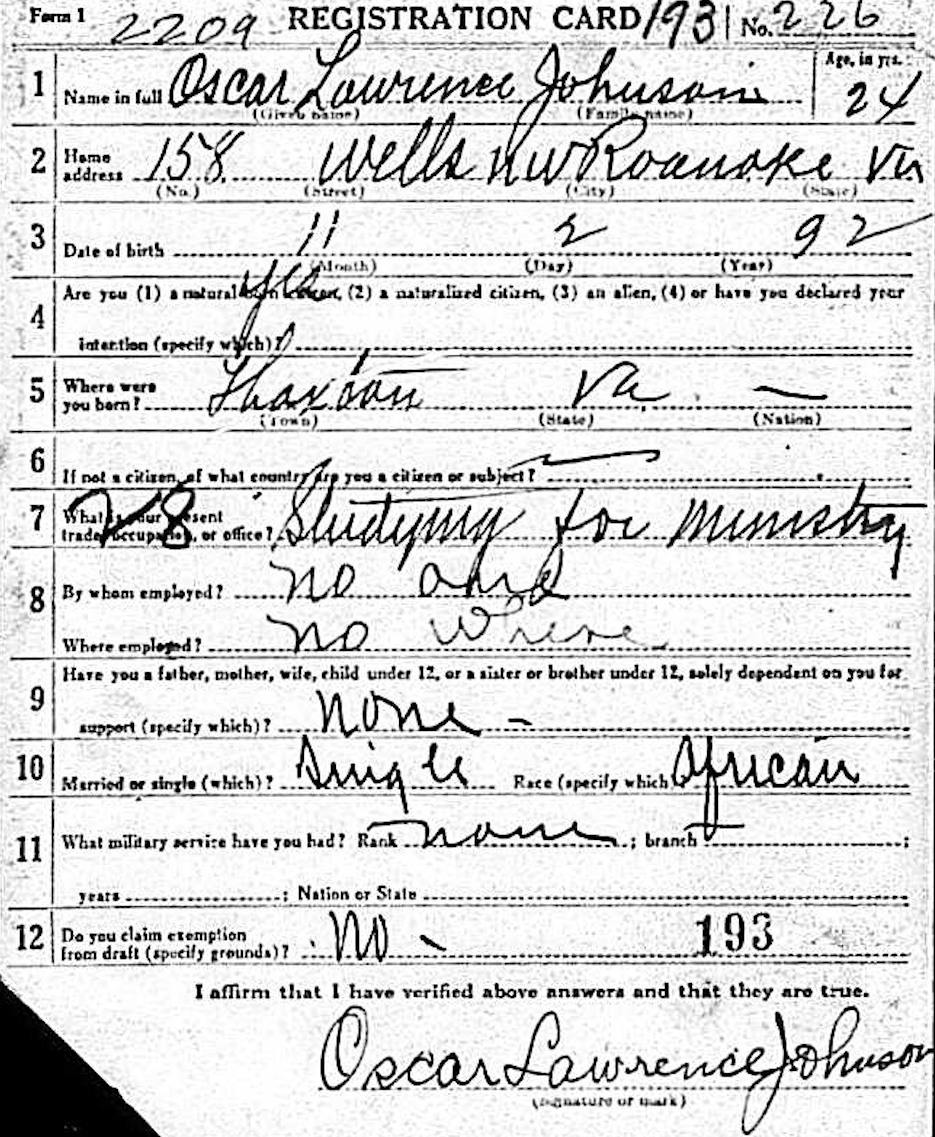 Form 1 2209 REGISTRATION CARD 193 No. 226
1 Name in full Oscar Lawrence Johnson Age, in yrs. 24
(Given name) (Family name)
2 Home address 158 Wells NW Roanoke Va
(No.) (Street) (City) (State)
3 Date of birth 11 2 92
(Month) (Day) (Year)
yes
4 Are you (1) a natural born citizen, (2) a naturalized citizen, (3) an alien, (4) or have you declared your
intention (specify which)?
5 Where were you born? Thaxton Va —
(Town) (State) (Nation)
6 If not a citizen, of what country are you a citizen or subject? —
7 What is your present
trade, occupation, or office? 28 Studying for ministry
8 By whom employed? no one
Where employed? no where
9 Have you a father, mother, wife, child under 12, or a sister or brother under 12, solely dependent on you for
support (specify which)? none -
10 Married or single (which)? Single Race (specify which)? African
11 What military service have you had? Rank none ; branch — ;
years ; Nation or State
12 Do you claim exemption
from draft (specify grounds)? No - 193
I affirm that I have verified above answers and that they are true.
Oscar Lawrence Johnson
(Signature or mark)